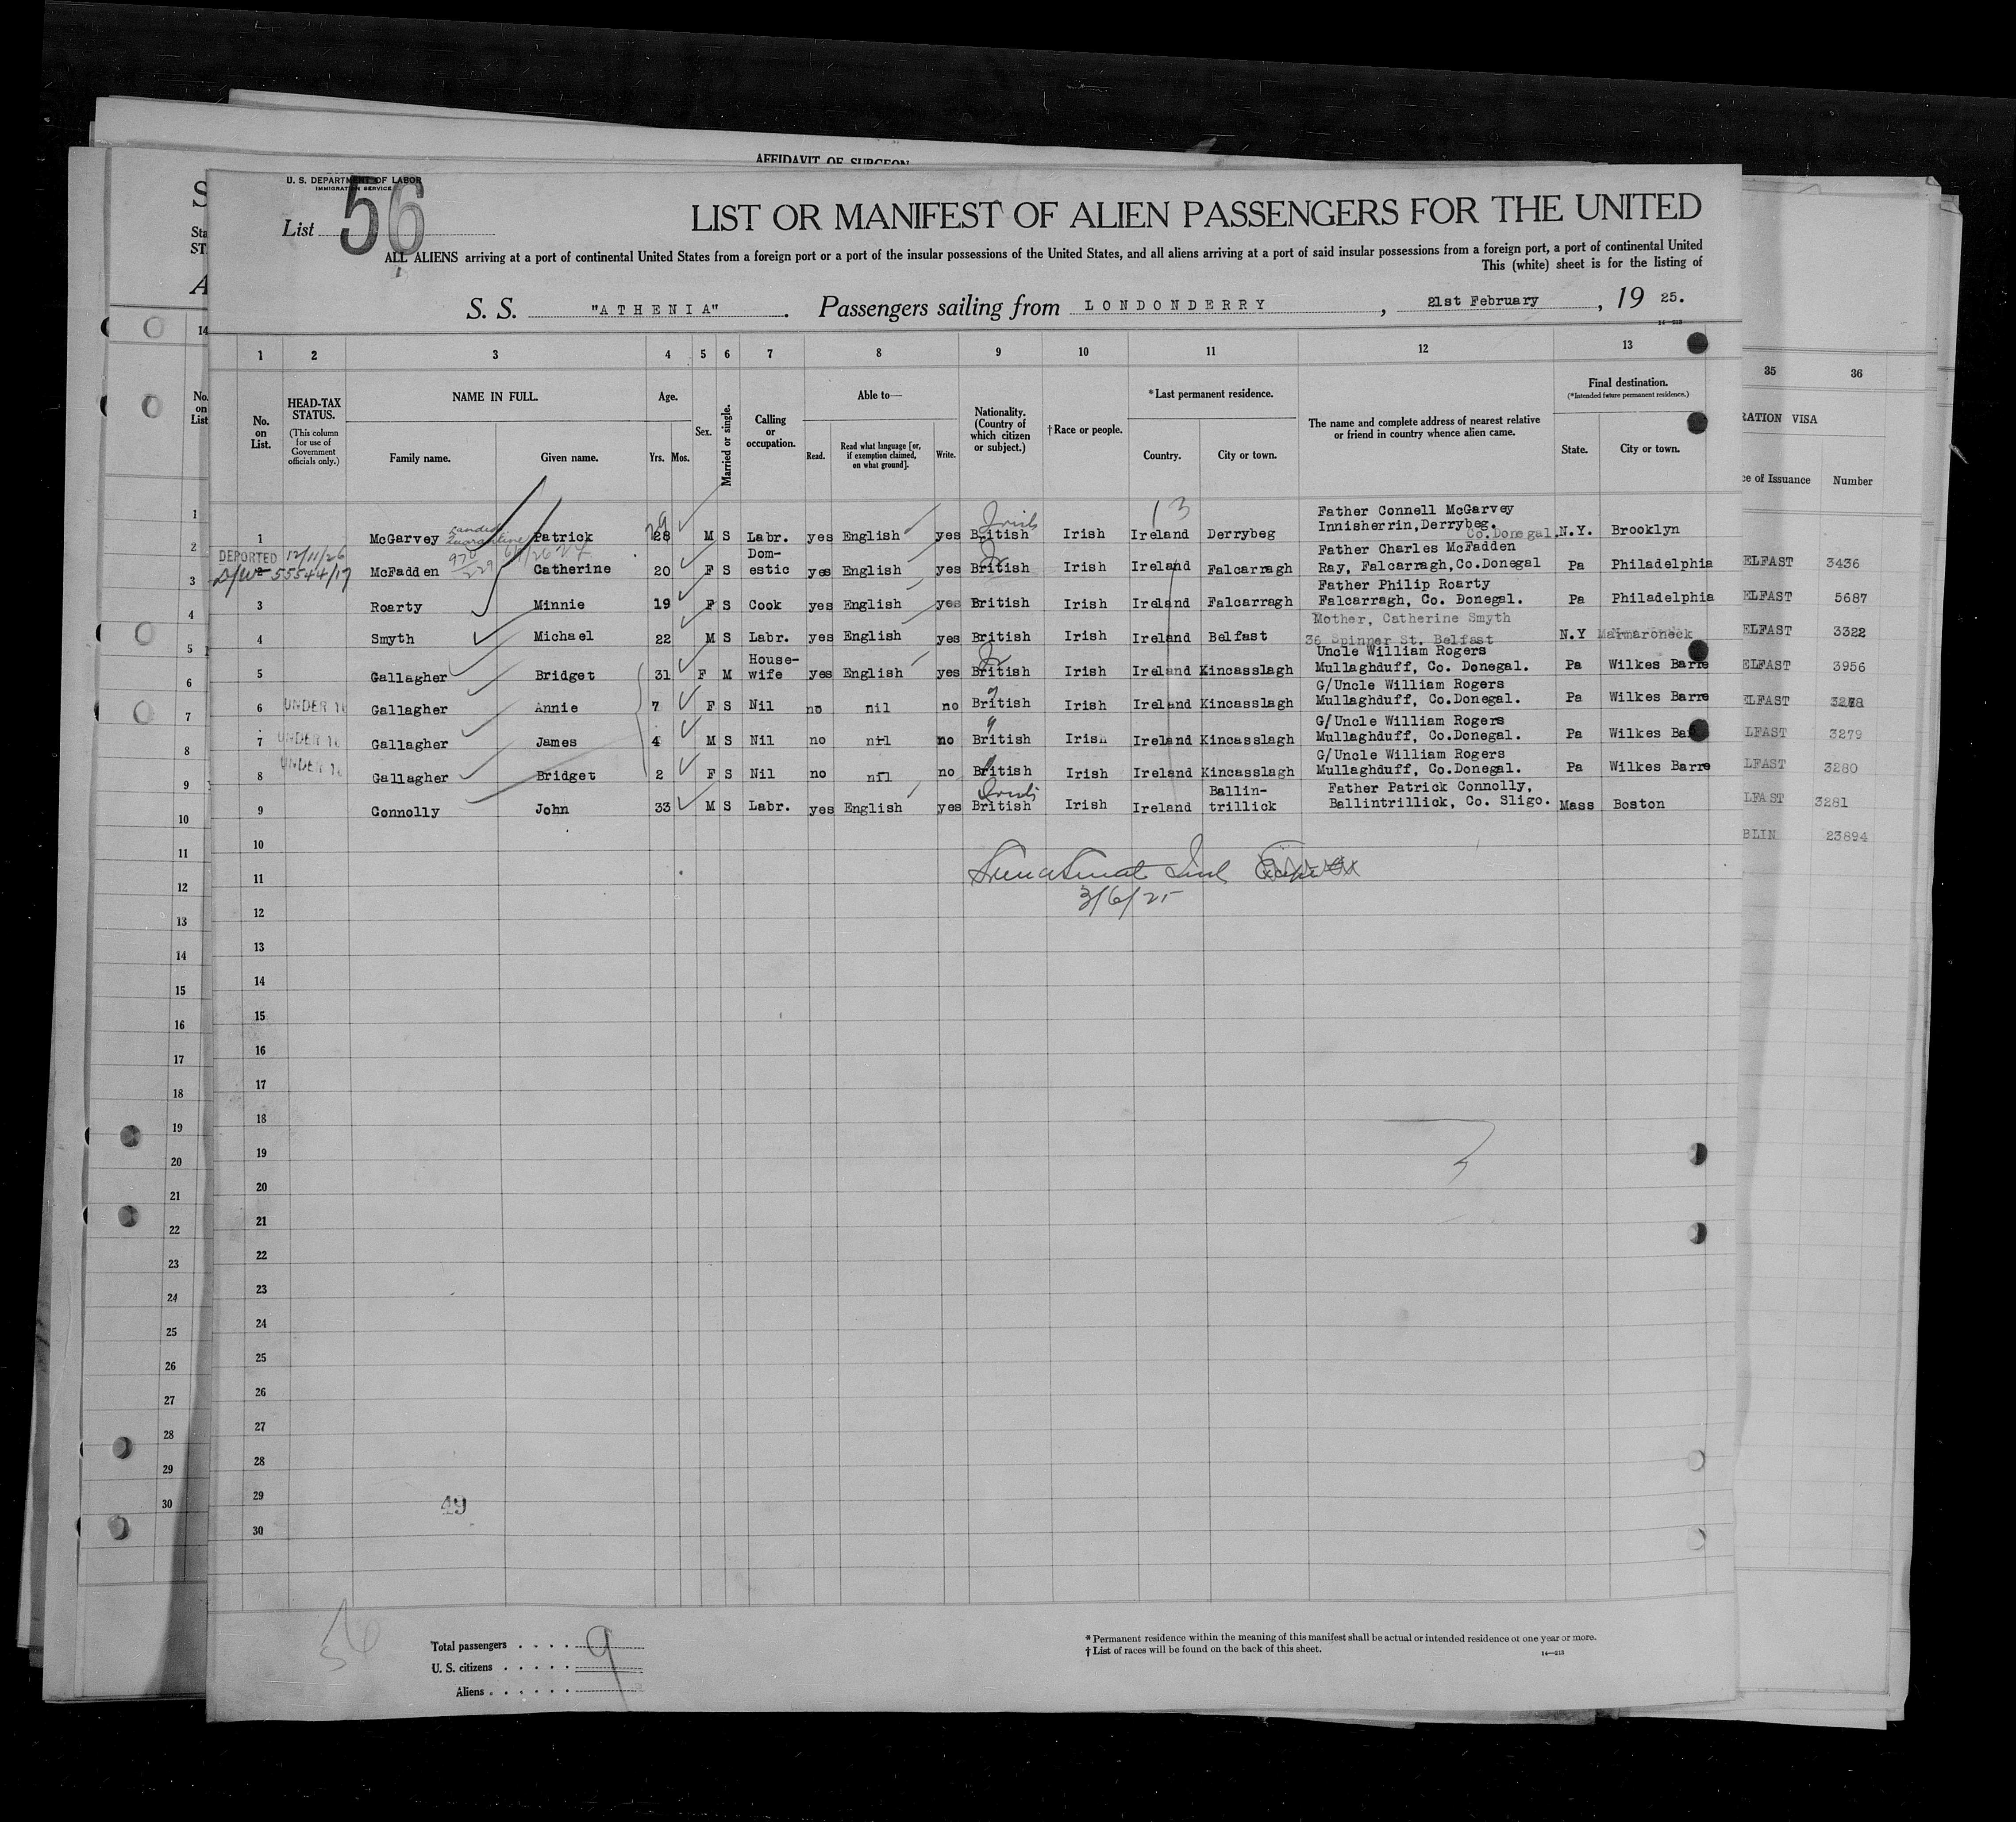 AFFIDAVIT OF SURGEON
U. S. DEPARTMENT OF LABOR
IMMIGRATION SERVICE
List 56
LIST OR MANIFEST OF ALIEN PASSENGERS FOR THE UNITED
ALL ALIENS arriving at a port of continental United States from a foreign port or a port of the insular possessions of the United States, and all aliens arriving at a port of said insular possessions from a foreign port, a port of continental United
This (white) sheet is for the listing of
S. S. "ATHENIA". Passengers sailing from LONDONDERRY, 21st February, 19 25.
14—213
1 2 3 4 5 6 7 8 9 10 11 12 13
No. on List.
HEAD-TAX STATUS.
(This column for use of Government officials only.)
NAME IN FULL.
Family name. Given name.
Age.
Yrs. Mos.
Sex.
Married or single.
Calling or occupation.
Able to—
Read. Read what language [or, if exemption claimed, on what ground]. Write.
Nationality. (Country of which citizen or subject.)
†Race or people.
*Last permanent residence.
Country. City or town.
The name and complete address of nearest relative or friend in country whence alien came.
Final destination.
(*Intended future permanent residence.)
State. City or town.
35 36
RATION VISA
ce of Issuance Number
13
1 McGarvey Patrick 28 29 M S Labr. yes English yes British Irish Irish Ireland Derrybeg Father Connell McGarvey Innisherrin, Derrybeg. Co.Donegal. N.Y. Brooklyn
DEPORTED 12/11/26
55544/17
2 McFadden Catherine 20 F S Dom-estic yes English yes British Irish Ireland Falcarragh Father Charles McFadden Ray, Falcarragh, Co.Donegal Pa Philadelphia
3 Roarty Minnie 19 F S Cook yes English yes British Irish Ireland Falcarragh Father Philip Roarty Falcarragh, Co. Donegal. Pa Philadelphia
4 Smyth Michael 22 M S Labr. yes English yes British Irish Ireland Belfast Mother, Catherine Smyth 36 Spinner St. Belfast N.Y Marmaroneck
5 Gallagher Bridget 31 F M House-wife yes English yes British Irish Ireland Kincasslagh Uncle William Rogers Mullaghduff, Co. Donegal. Pa Wilkes Barre
6 UNDER 16 Gallagher Annie 7 F S Nil no nil no British Irish Ireland Kincasslagh G/Uncle William Rogers Mullaghduff, Co.Donegal. Pa Wilkes Barre
7 UNDER 16 Gallagher James 4 M S Nil no nil no British Irish Ireland Kincasslagh G/Uncle William Rogers Mullaghduff, Co.Donegal. Pa Wilkes Barre
8 UNDER 16 Gallagher Bridget 2 F S Nil no nil no British Irish Ireland Kincasslagh G/Uncle William Rogers Mullaghduff, Co.Donegal. Pa Wilkes Barre
9 Connolly John 33 M S Labr. yes English yes British Irish Irish Ireland Ballin-trillick Father Patrick Connolly, Ballintrillick, Co. Sligo. Mass Boston
ELFAST 3436
ELFAST 5687
ELFAST 3322
ELFAST 3956
ELFAST 3278
LFAST 3279
LFAST 3280
LFAST 3281
BLIN 23894
10
11
3/6/25
12
13
14
15
16
17
18
19
20
21
22
23
24
25
26
27
28
29
49
30
56
Total passengers . . . . 9
U. S. citizens . . . . .
Aliens . . . . . .
* Permanent residence within the meaning of this manifest shall be actual or intended residence of one year or more.
† List of races will be found on the back of this sheet.
14—213